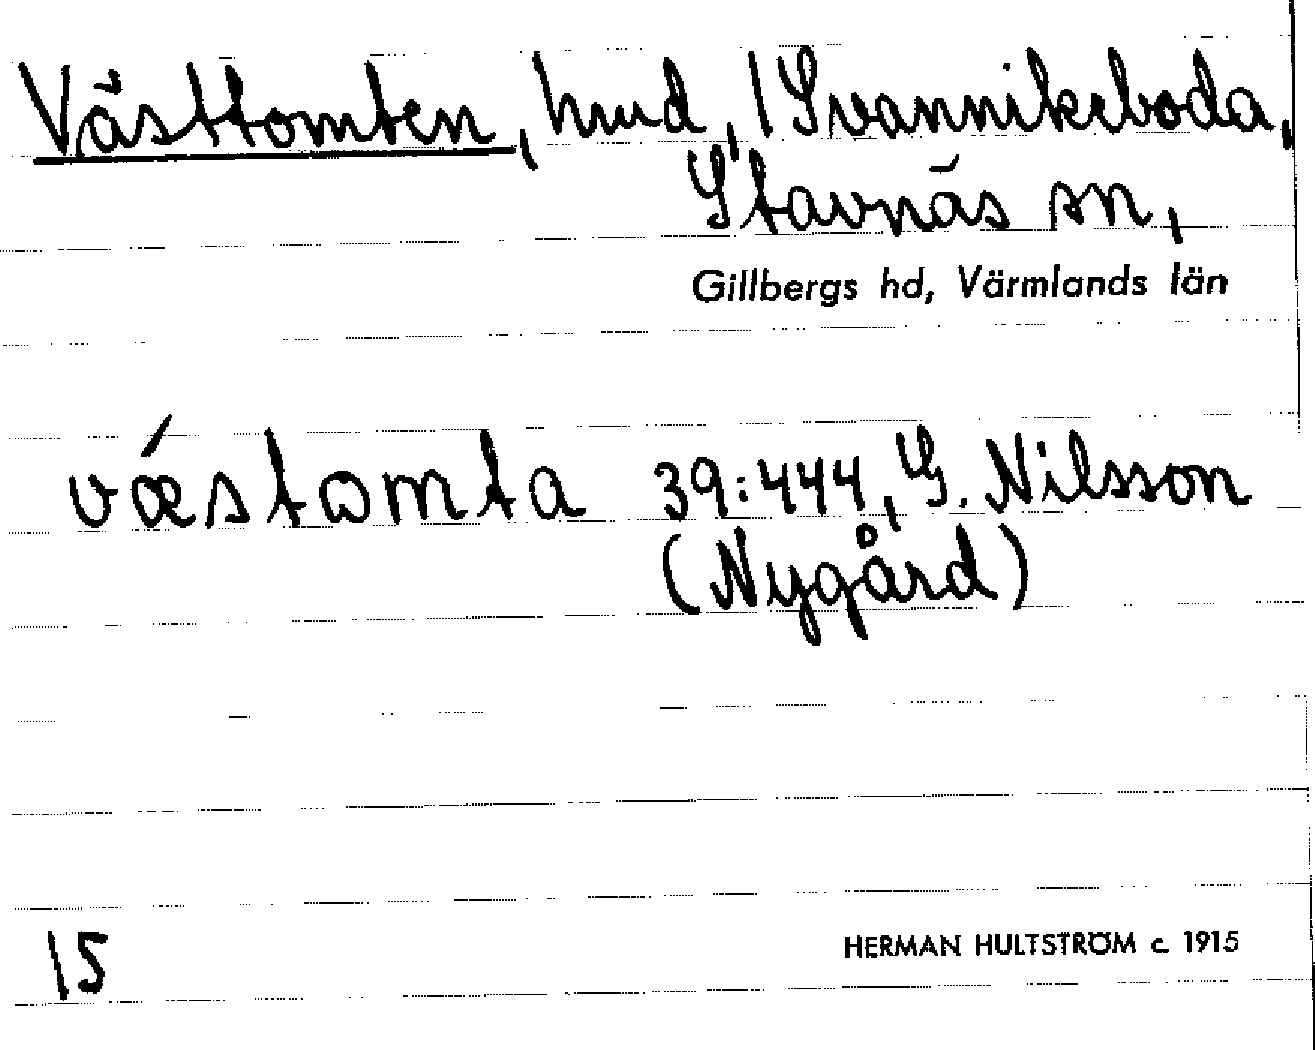 Västtomten, hmd, 1 Svannikeboda,
Stavnäs sn,
Gillbergs hd, Värmlands län
vǽstomta 39:444, G. Nilsson
(Nygård)
15
HERMAN HULTSTRÖM c. 1915